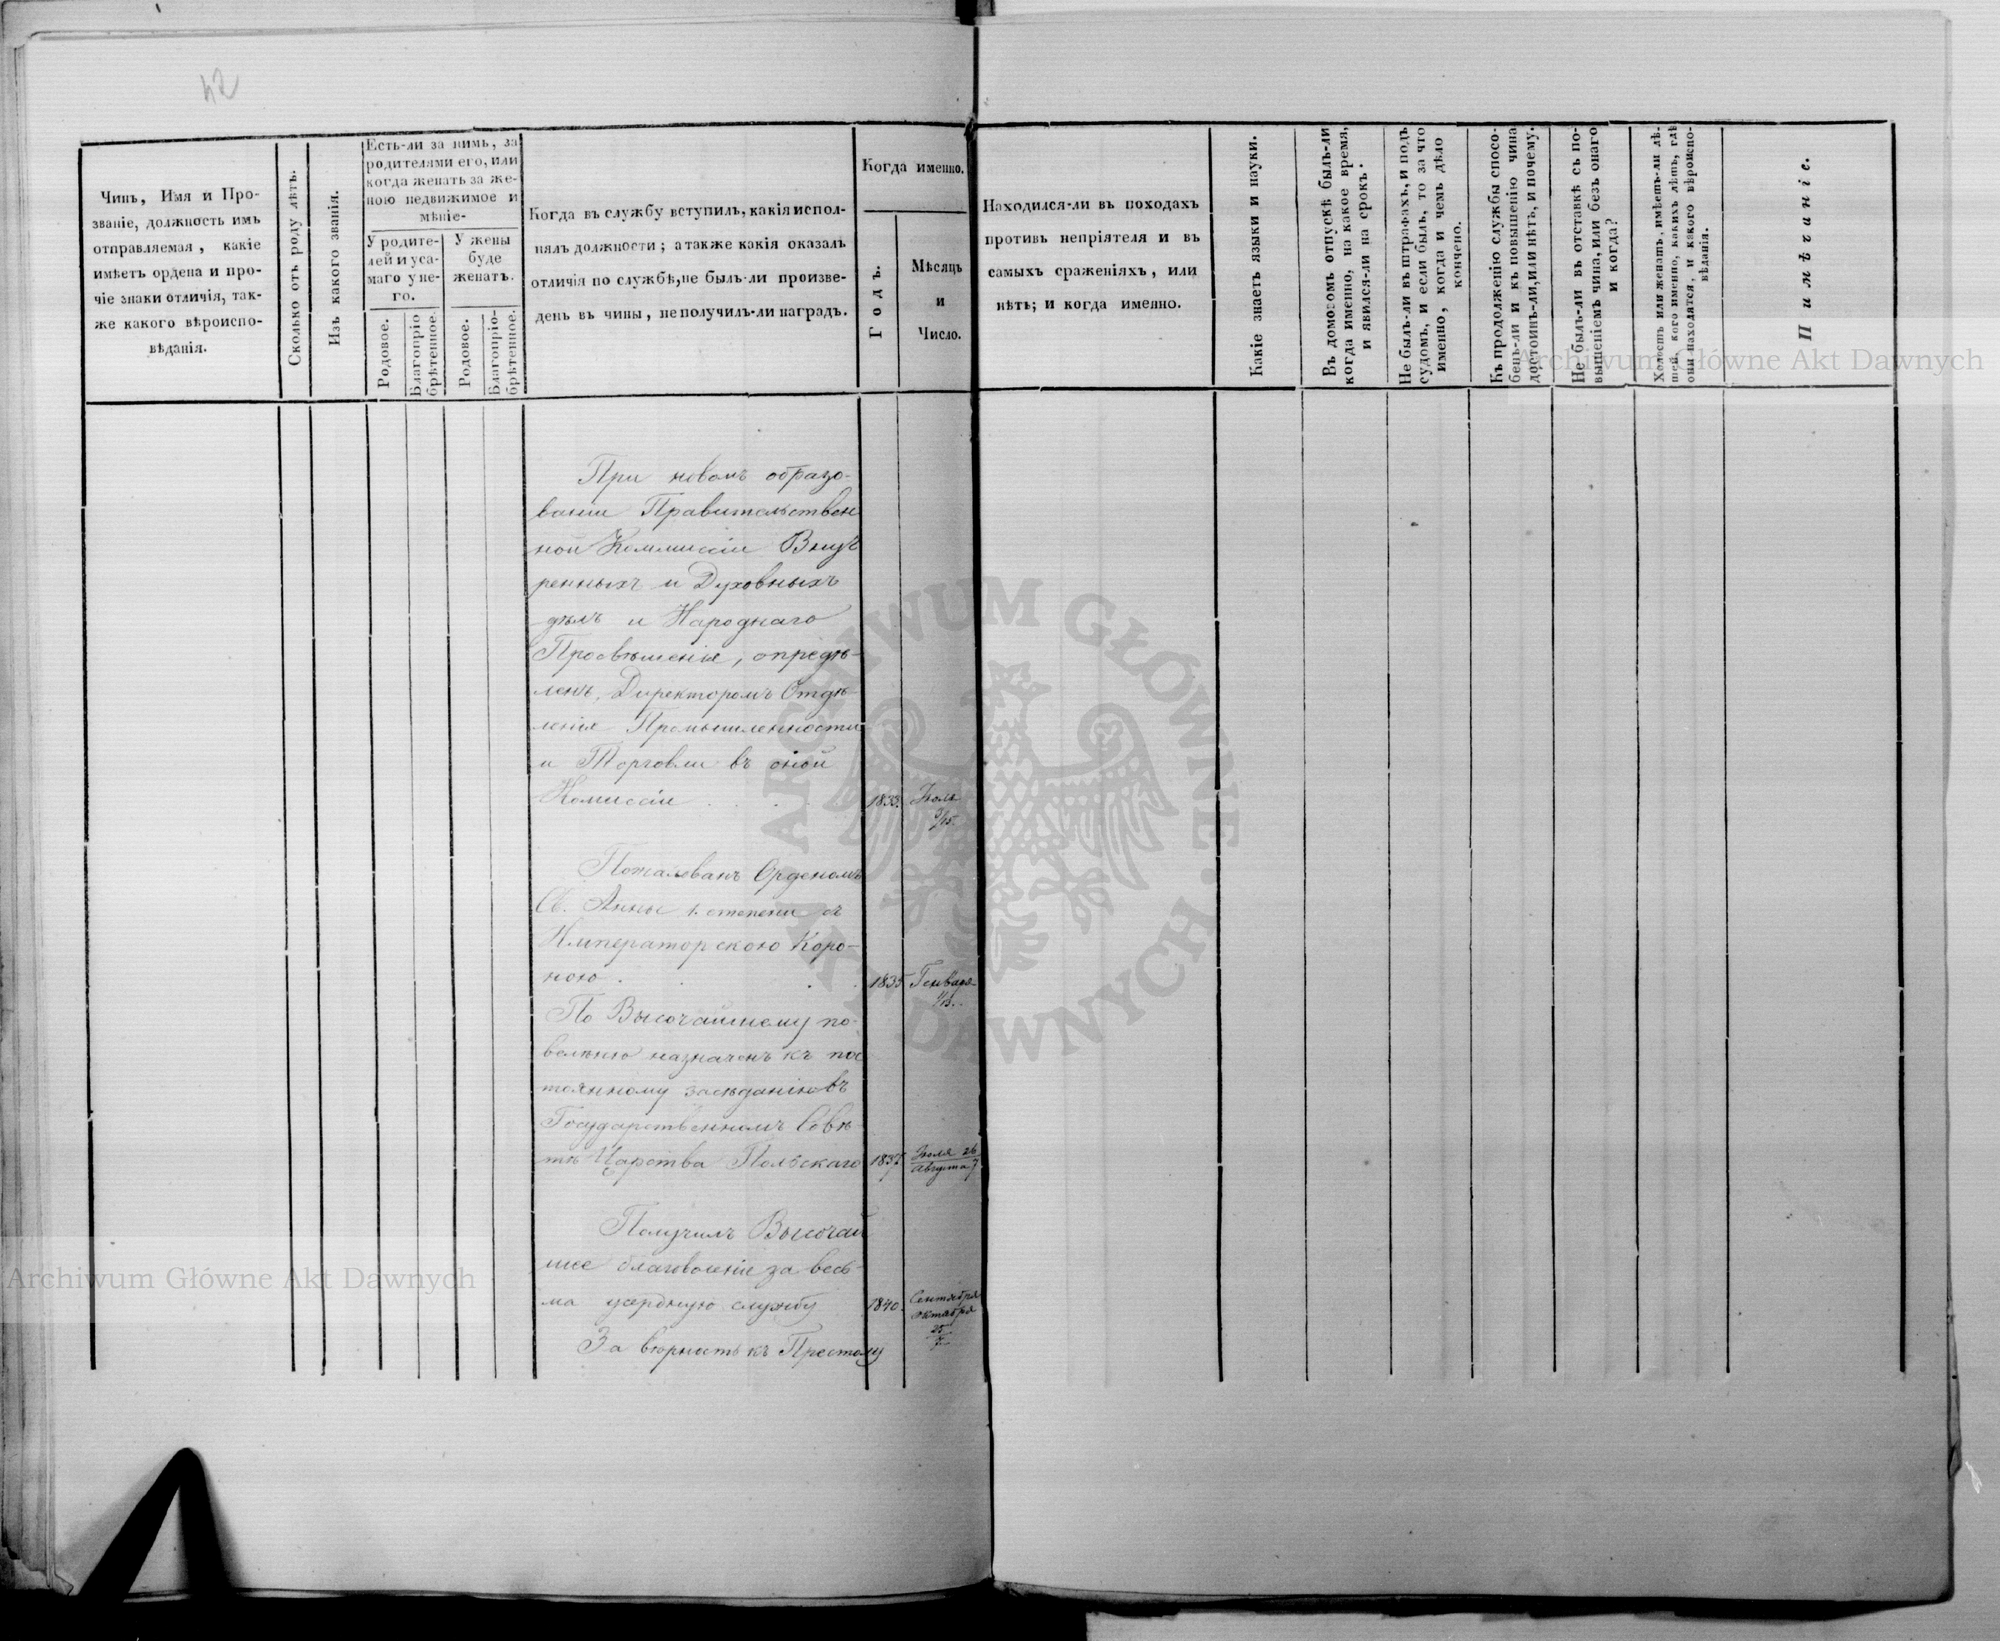 42
Чинъ, Имя и Про-
званіе, должность имъ
отправляемая, какіе
имѣетъ ордена и про-
чіе знаки отличія, так-
же какого вѣроиспо-
вѣданія.
Сколько отъ роду лѣтъ.
Изъ какого званія.
Есть-ли за нимъ, за
родителями его, или
когда женатъ за же-
ною недвижимое и
мѣніе-
У родите-
лей и у са-
маго у не-
го.
У жены
буде
женатъ.
Родовое.
Благопріо
брѣтенное.
Родовое.
Благопріо-
брѣтенное.
Когда въ службу вступилъ, какія испол-
нялъ должности; а также какія оказалъ
отличія по службѣ, не былъ-ли произве-
денъ въ чины, не получилъ-ли наградъ.
Когда именно.
Годъ.
Мѣсяцъ
и
Число.
Находился-ли въ походахъ
противъ непріятеля и въ
самыхъ сраженіяхъ, или
нѣтъ; и когда именно.
Какіе знаетъ языки и науки.
Въ домовомъ отпускѣ былъ-ли
когда именно, на какое время,
и явился-ли на срокъ.
Не былъ-ли въ штрафахъ, и подъ
судомъ, и если былъ, то за что
именно, когда и чемъ дѣло
кончено.
Къ продолженію службы спосо-
бенъ-ли и къ повышенію чина
достоинъ-ли, или нѣтъ, и почему.
Не былъ-ли въ отставкѣ съ по-
вышеніемъ чина, или безъ онаго
и когда?
Холостъ или женатъ, имѣетъ-ли дѣ-
шей, кого именно, какихъ лѣтъ, гдѣ
они находятся, и какого вѣроиспо-
вѣданія.
Пимѣчаніе.
При новомъ образо-
ваніи Правительствен
ной Коммисіи Внут
ренныхъ и Духовныхъ
дѣлъ и Народнаго
Просвѣщенія, опредѣ-
ленъ, Директоромъ Отдѣ-
ленія Промышленности
и Торговли въ оной
Комиссіи . . . .
1833.
Іюля
3/15.
Пожалованъ Орденомъ
Св. Анны 1. степени съ
Императорскою Коро-
ною . . . .
1835
Генваря
1/13.
По Высочайшему по-
велѣнію назначенъ къ пос
тоянному засѣданію въ
Государственномъ Совѣ-
тѣ Царства Польскаго
1837
Іюля 26
Августа 7
Получилъ Высочай
шее благоволеніе за весь-
ма усердную службу
1840.
Сентября
октября
25
7
За вѣрность къ Престолу
ARCHIWUM GŁÓWNE AKT DAWNYCH
Archiwum Główne Akt Dawnych
Archiwum Główne Akt Dawnych